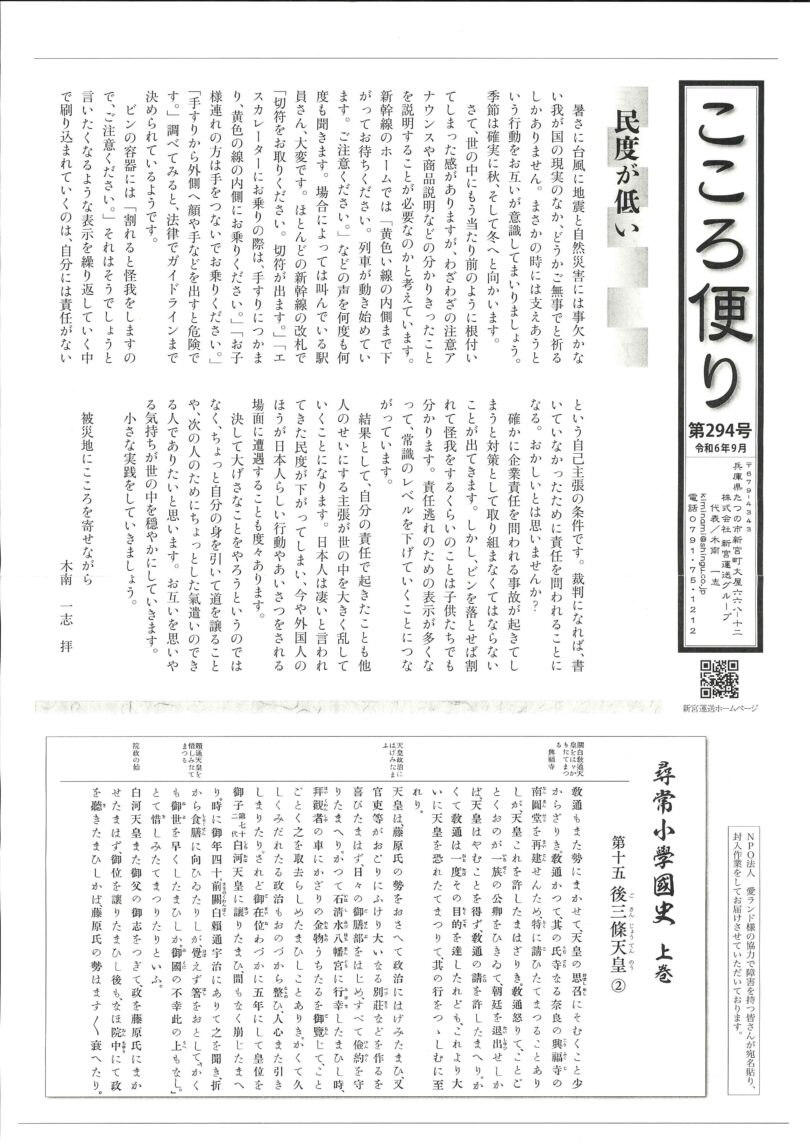 こころ便り
第294号
令和6年9月
〒679-4343
兵庫県たつの市新宮町大屋六六八-十二
株式会社 新宮運送グループ
代表/木南 一志
kiminami@shingu.co.jp
電話 0791・75・1212
新宮運送ホームページ
民度が低い
暑さに台風に地震と自然災害には事欠かな
い我が国の現実のなか、どうかご無事でと祈る
しかありません。まさかの時には支えあうと
いう行動をお互いが意識してまいりましょう。
季節は確実に秋、そして冬へと向かいます。
さて、世の中にもう当たり前のように根付い
てしまった感がありますが、わざわざの注意ア
ナウンスや商品説明などの分かりきったこと
を説明することが必要なのかと考えています。
新幹線のホームでは「黄色い線の内側まで下
がってお待ちください。列車が動き始めてい
ます。ご注意ください。」などの声を何度も何
度も聞きます。場合によっては叫んでいる駅
員さん、大変です。ほとんどの新幹線の改札で
「切符をお取りください。切符が出ます。」「エ
スカレーターにお乗りの際は、手すりにつかま
り、黄色の線の内側にお乗りください。」「お子
様連れの方は手をつないでお乗りください。」
「手すりから外側へ顔や手などを出すと危険で
す。」調べてみると、法律でガイドラインまで
決められているようです。
ビンの容器には「割れると怪我をしますの
で、ご注意ください。」それはそうでしょうと
言いたくなるような表示を繰り返していく中
で刷り込まれていくのは、自分には責任がない
という自己主張の条件です。裁判になれば、書
いていなかったために責任を問われることに
なる。おかしいとは思いませんか?
確かに企業責任を問われる事故が起きてし
まうと対策として取り組まなくてはならない
ことが出てきます。しかし、ビンを落とせば割
れて怪我をするくらいのことは子供たちでも
分かります。責任逃れのための表示が多くな
って、常識のレベルを下げていくことにつな
がっています。
結果として、自分の責任で起きたことも他
人のせいにする主張が世の中を大きく乱して
いくことになります。日本人は凄いと言われ
てきた民度が下がってしまい、今や外国人の
ほうが日本人らしい行動やあいさつをされる
場面に遭遇することも度々あります。
決して大げさなことをやろうというのでは
なく、ちょっと自分の身を引いて道を譲ること
や、次の人のためにちょっとした氣遣いのでき
る人でありたいと思います。お互いを思いや
る気持ちが世の中を穏やかにしていきます。
小さな実践をしていきましょう。
被災地にこころを寄せながら
木南 一志 拝
NPO法人 愛ランド様の協力で障害を持つ皆さんが宛名貼り、
封入作業をしてお届けさせていただいております。
尋常小學國史 上巻
第十五 後三條天皇 ②
關白敎通天
皇をはゞか
りたてまつ
る興福寺
敎通もまた勢にまかせて、天皇の思召にそむくこと少
からざりき。敎通かつて、其の氏寺なる奈良の興福寺の
南圓堂を再建せんため、特に請ひたてまつることあり
しが、天皇これを許したまはざりき。敎通怒りて、ことご
とくおのが一族の公卿をひきゐて朝廷を退出せしか
ば、天皇はやむことを得ず敎通の請を許したまへり。か
くて敎通は一度その目的を達したれども、これより大
いに天皇を恐れたてまつりて、其の行をつゝしむに至
れり。
天皇政治に
はげみたま
ふ
天皇は、藤原氏の勢をおさへて政治にはげみたまひ、又
官吏等がおごりにふけり大いなる別莊などを作るを
喜びたまはず、日々の御膳部をはじめ、すべて儉約を守
りたまへり。かつて石清水八幡宮に行幸したまひし時、
拜觀者の車にかざりの金物うちたるを御覽じて、こと
ごとく之を取去らしめたまひしことあり。かくて久
しくみだれたる政治もおのづから整ひ、人心また引き
しまりたり。されど御在位わづかに五年にして皇位を
御子第七十二代白河天皇に讓りたまひ、間もなく崩じたまへ
頼通天皇を
惜しみたて
まつる
り、時に御年四十。前關白賴通宇治にありて之を聞き、折
から食膳に向ひゐたりしが、覺えず箸をおとして、「かく
も御世を早くしたまひしか、御國の不幸此の上もなし。」
とて惜しみたてまつりたりといふ。
院政の始
白河天皇また御父の御志をつぎて政を藤原氏にまか
せたまはず、御位を讓りたまひし後も、なほ院中にて政
を聽きたまひしかば、藤原氏の勢はます〱衰へたり。